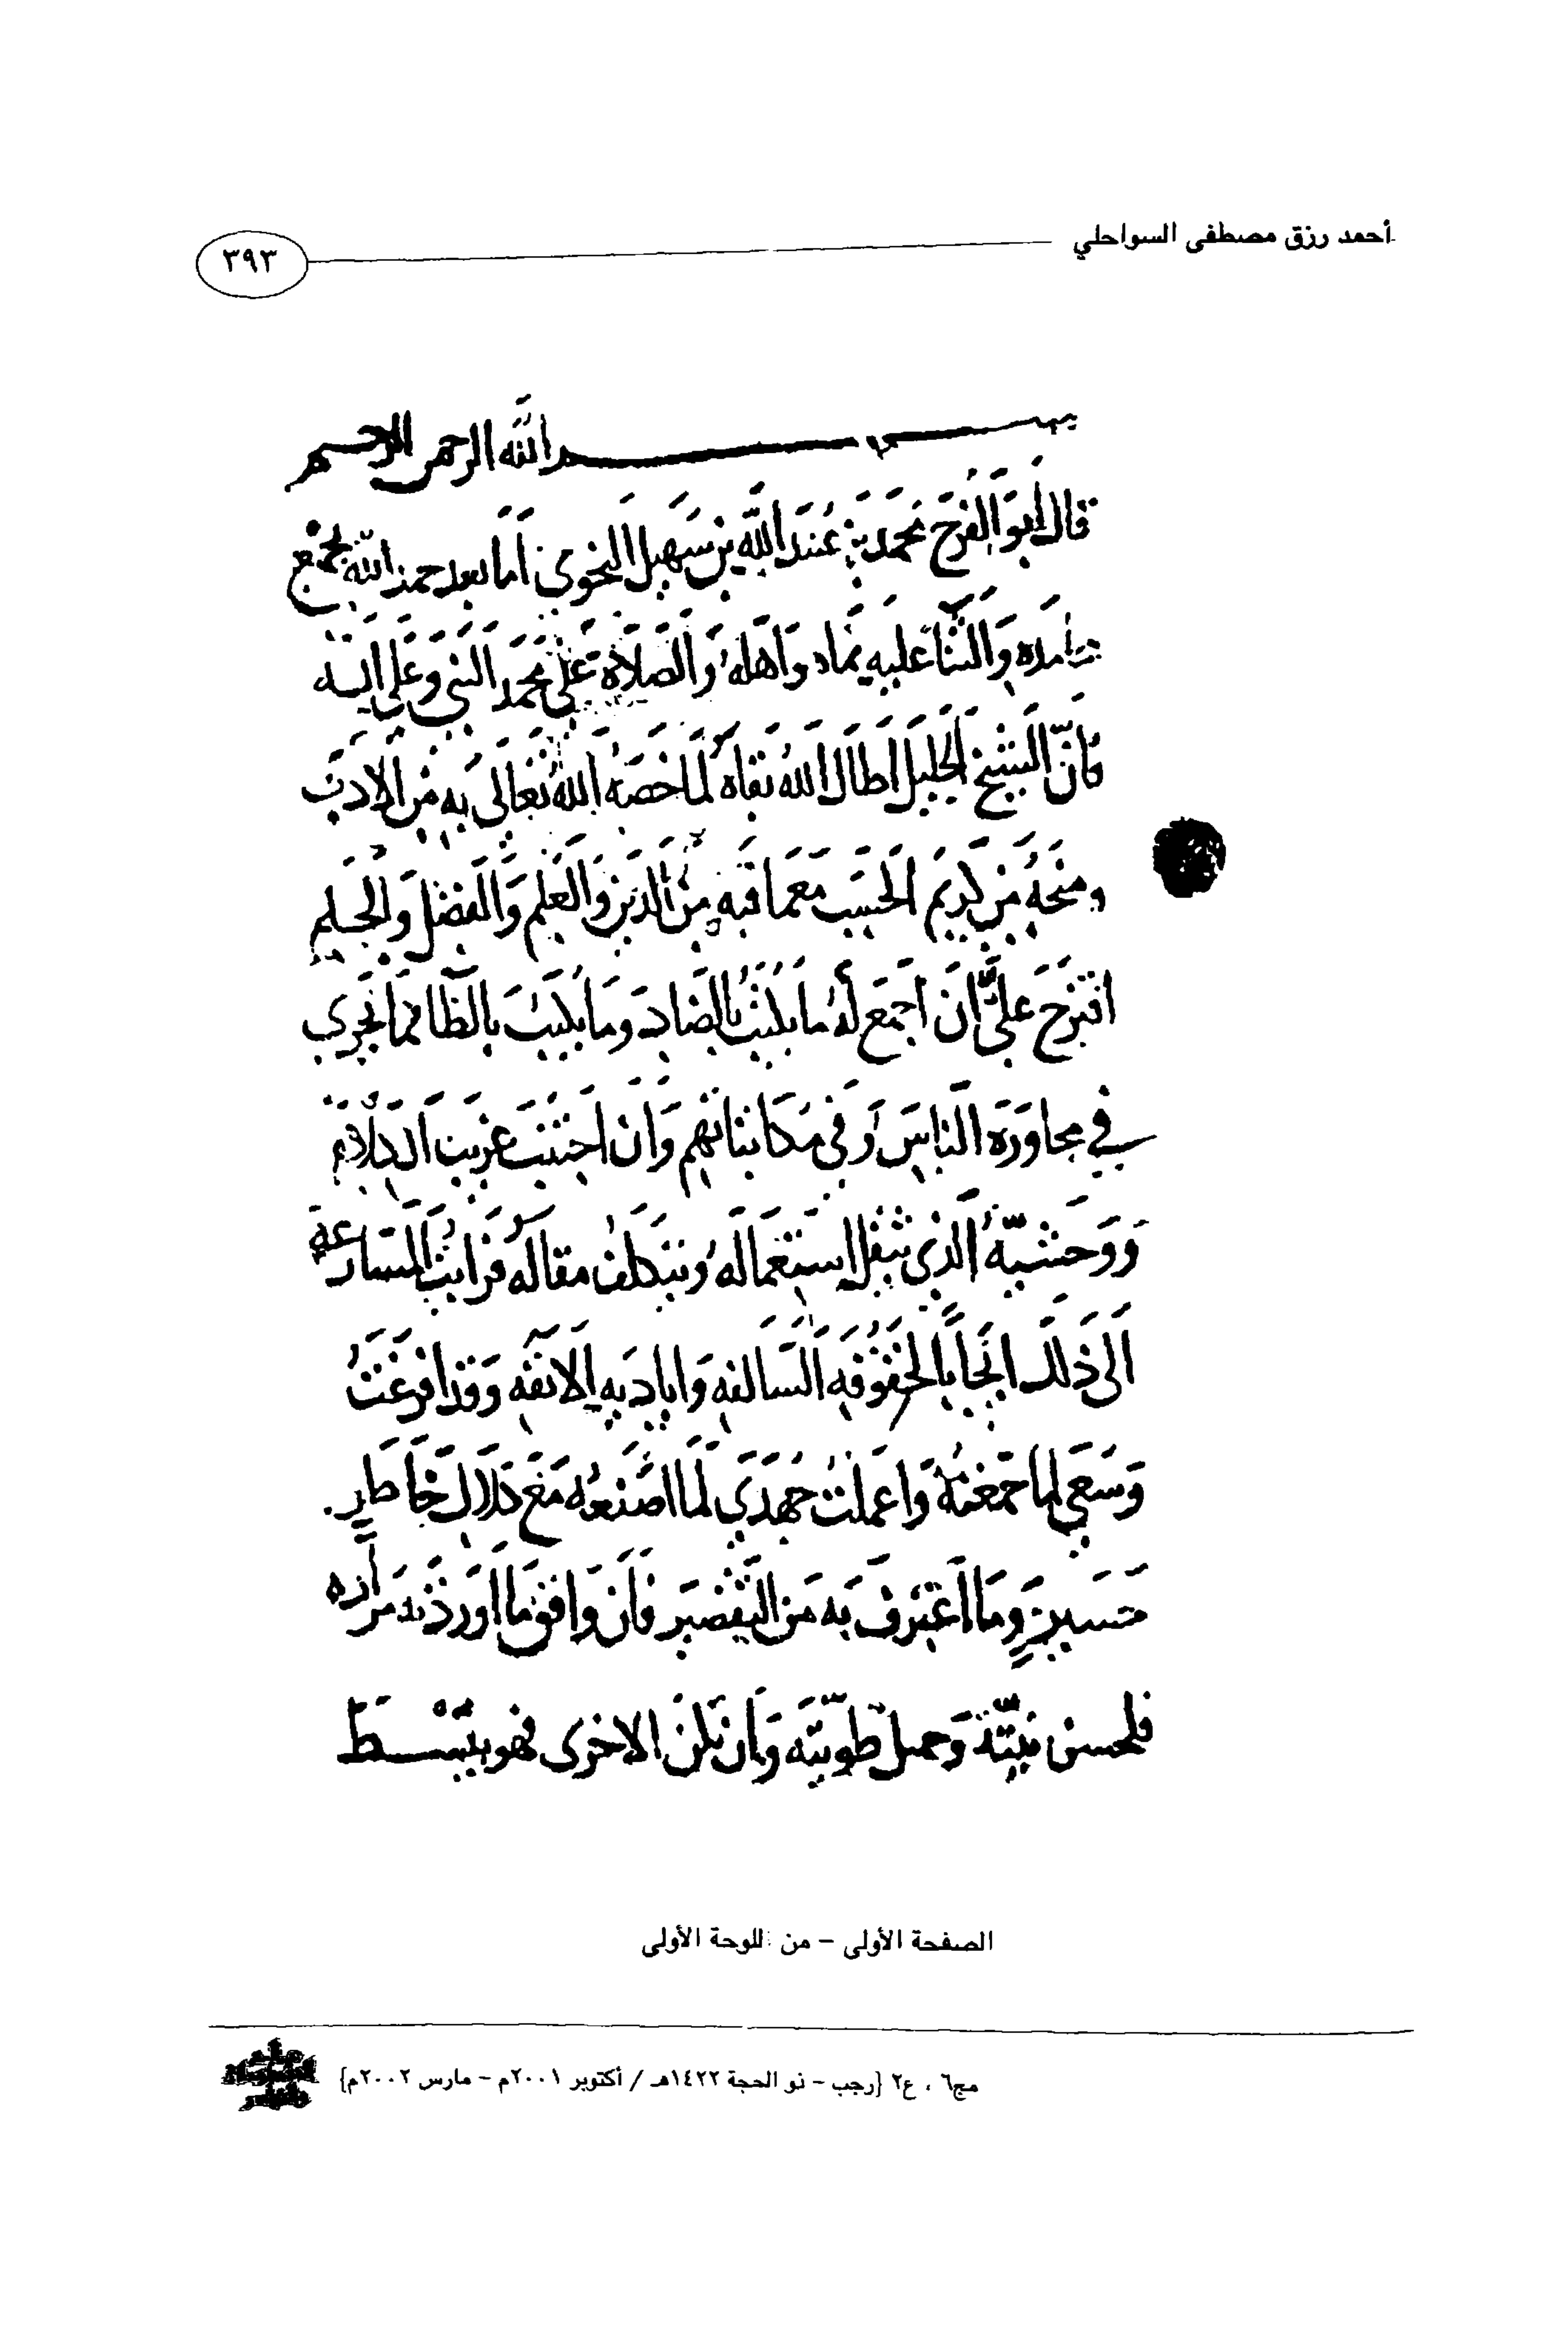 أحمد رزق مصطفى السواحلي
٣٩٣
بسم الله الرحمن الرحيم
قال أبو الفرج محمد بن عبد الله بن سهيل النحوي أما بعد حمد الله بجميع
محامده والثنا عليه بما هو أهله والصلاة على محمد النبي وعلى آله
فان الشيخ الجليل اطال الله بقاه لما خصه الله تعالى به من الادب
ومنحه من كريم الحسب مع ما فيه من الدين والعلم والفضل والحلم
اقترح علي ان اجمع له ما يكتب بالضاد وما يكتب بالظا مما يجري
في محاورة الناس او في مكاتباتهم وان اجتنب غريب الكلام
ووحشيه الذي يثقل استعماله ويتكلف مقاله فرايت المسارعة
الى ذلك ايجابا لحقوقه السالفه واياديه الآنفه وقد افرغت
وسعي لما جمعته واعملت جهدي لما اصنعه مع كلال خاطر
حسير وما اعترف به من التقصير فان وافق ما اوردته مراده
فلحسن نيته وجميل طويته وان تكن الاخرى فهو يبسط
الصفحة الأولى – من اللوحة الأولى
مج٦ ، ع٢ {رجب – ذو الحجة ١٤٢٢هـ / أكتوبر ٢٠٠١م – مارس ٢٠٠٢م}